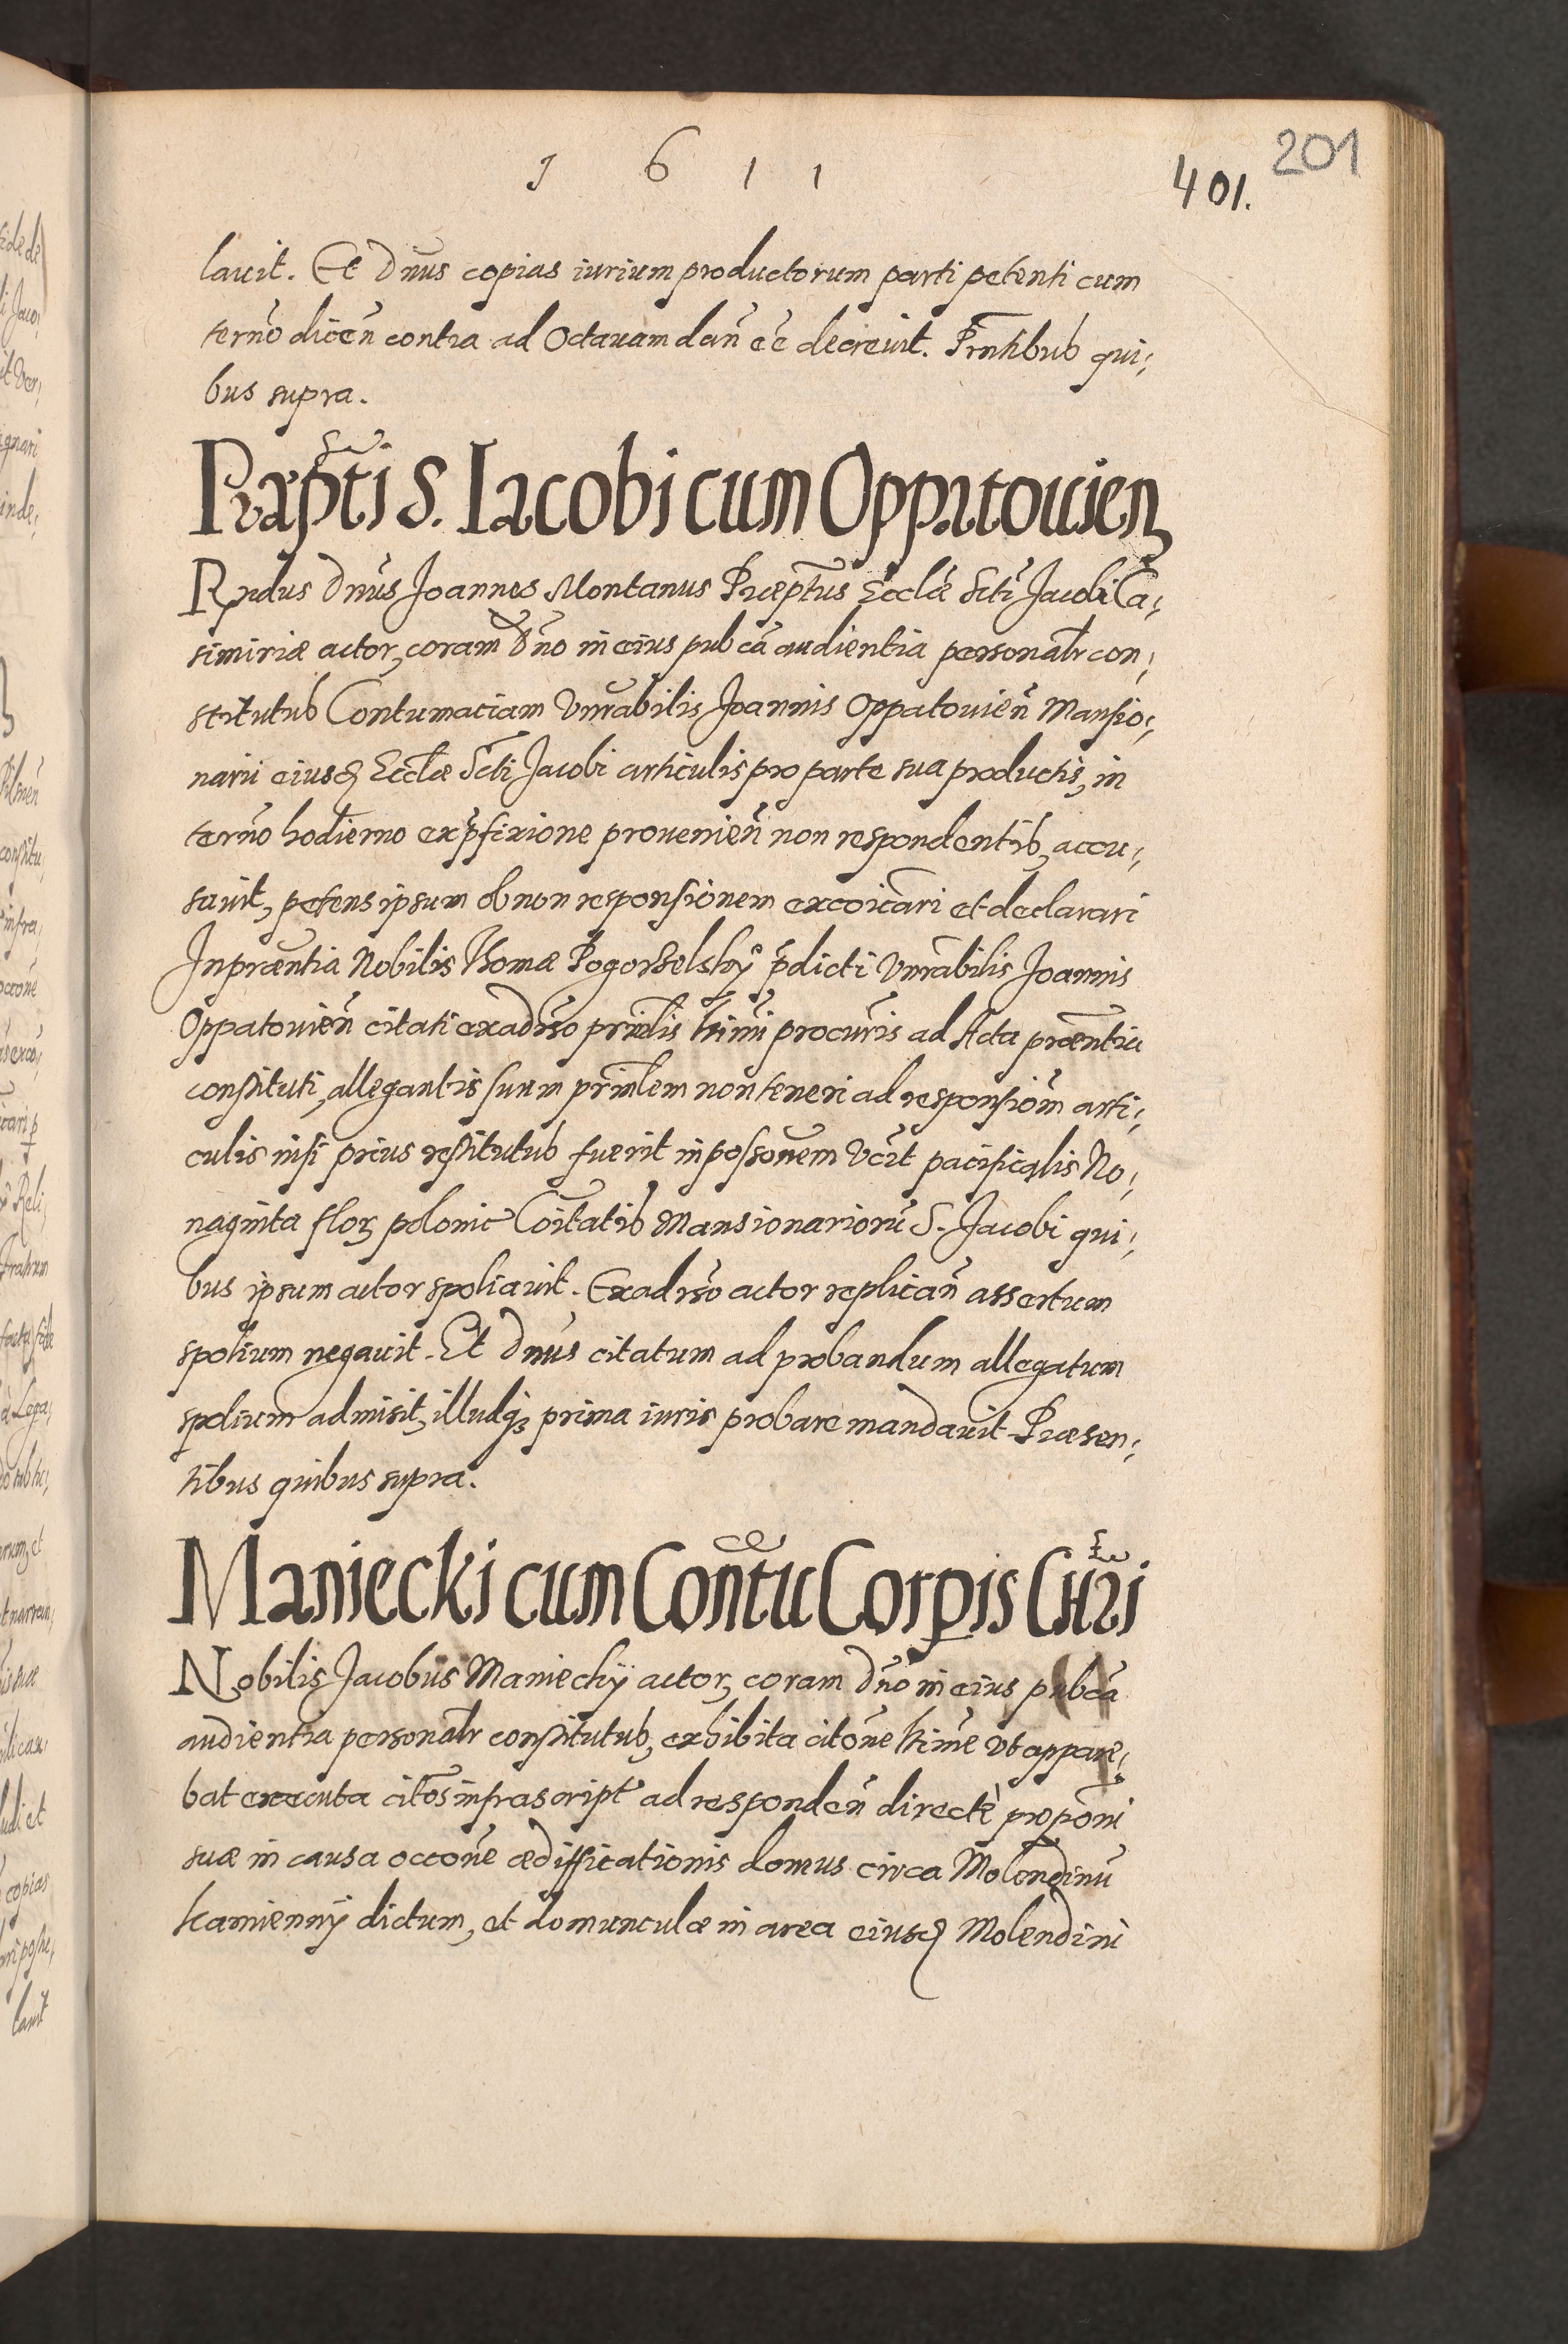 1 6 1 1
401. 201
lauit. Et Dnus copias iurium productorum parti petenti cum
terno dicen contra ad Octauam dan eē decreuit. Pntibus qui,
bus supra.
Præpti S. Iacobi cum Oppatouien
Rndus Dnus Joannes Montanus Præptus Ecclæ Scti Jacobi Ca,
simiriæ actor, coram Dno in eius pubca audientia personalr con,
stitutus Contumaciam Vnrabilis Joannis Oppatouien Mansio,
narii eiusd Ecclæ Scti Jacobi articulis pro parte sua productis, in
terno hodierno ex pfixione prouenien non respondentis, accu,
sauit, petens ipsum ob non responsionem excoicari et declarari
In præntia Nobilis Thomæ Pogorzelsky pdicti Vnrabilis Joannis
Oppatouien citati ex aduso prinlis ltimi procuris ad Acta præntia
constituti, allegantis suum prinlem non teneri ad responsiom arti,
culis nisi prius restitutus fuerit in possonem Vczt pacificalis No,
naginta flor polonic Coitatis Mansionarioru S. Jacobi qui,
bus ipsum actor spoliauit. Ex aduso actor replican assertum
spolium negauit. Et Dnus citatum ad probandum allegatum
spolium admisit, illudq prima iuris probare mandauit. Præsen,
tibus quibus supra.
Maniecki cum Conntu Corpis Chri
Nobilis Jacobus Maniecky actor, coram Dno in eius pubca
audientia personalr constitutus, exhibita citone ltime vt appare,
bat executa citos infrascript ad responden directè proponi
suæ in causa occone ædifficationis domus circa Molendinu
kamienny dictum, et domunculæ in area eiusd Molendini